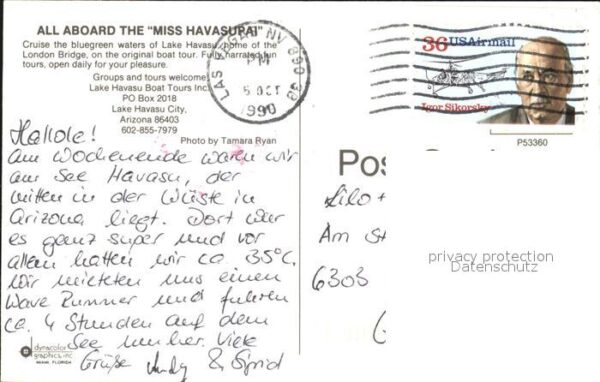 ALL ABOARD THE "MISS HAVASUPAI"
Cruise the bluegreen waters of Lake Havasu, home of the
London Bridge, on the original boat tour. Fully narrated fun
tours, open daily for your pleasure.
Groups and tours welcome
Lake Havasu Boat Tours Inc.
PO Box 2018
Lake Havasu City,
Arizona 86403
602-855-7979
Photo by Tamara Ryan
LAS VEGAS NV 890 33
PM
5 OCT
1990
36 USAirmail
Igor Sikorsky
P53360
Hallole!
Am Wochenende waren wir
am See Havasu, der
mitten in der Wüste in
Arizona liegt. Dort war
es ganz super und vor
allem hatten wir ca. 35°C.
Wir mieteten uns einen
Wave Runner und fuhren
ca. 4 Stunden auf dem
See umher. Viele
Grüße Andy & Sigrid
Pos
Lilo +
Am St
6303
privacy protection
Datenschutz
dynacolor
graphics, inc.
MIAMI, FLORIDA